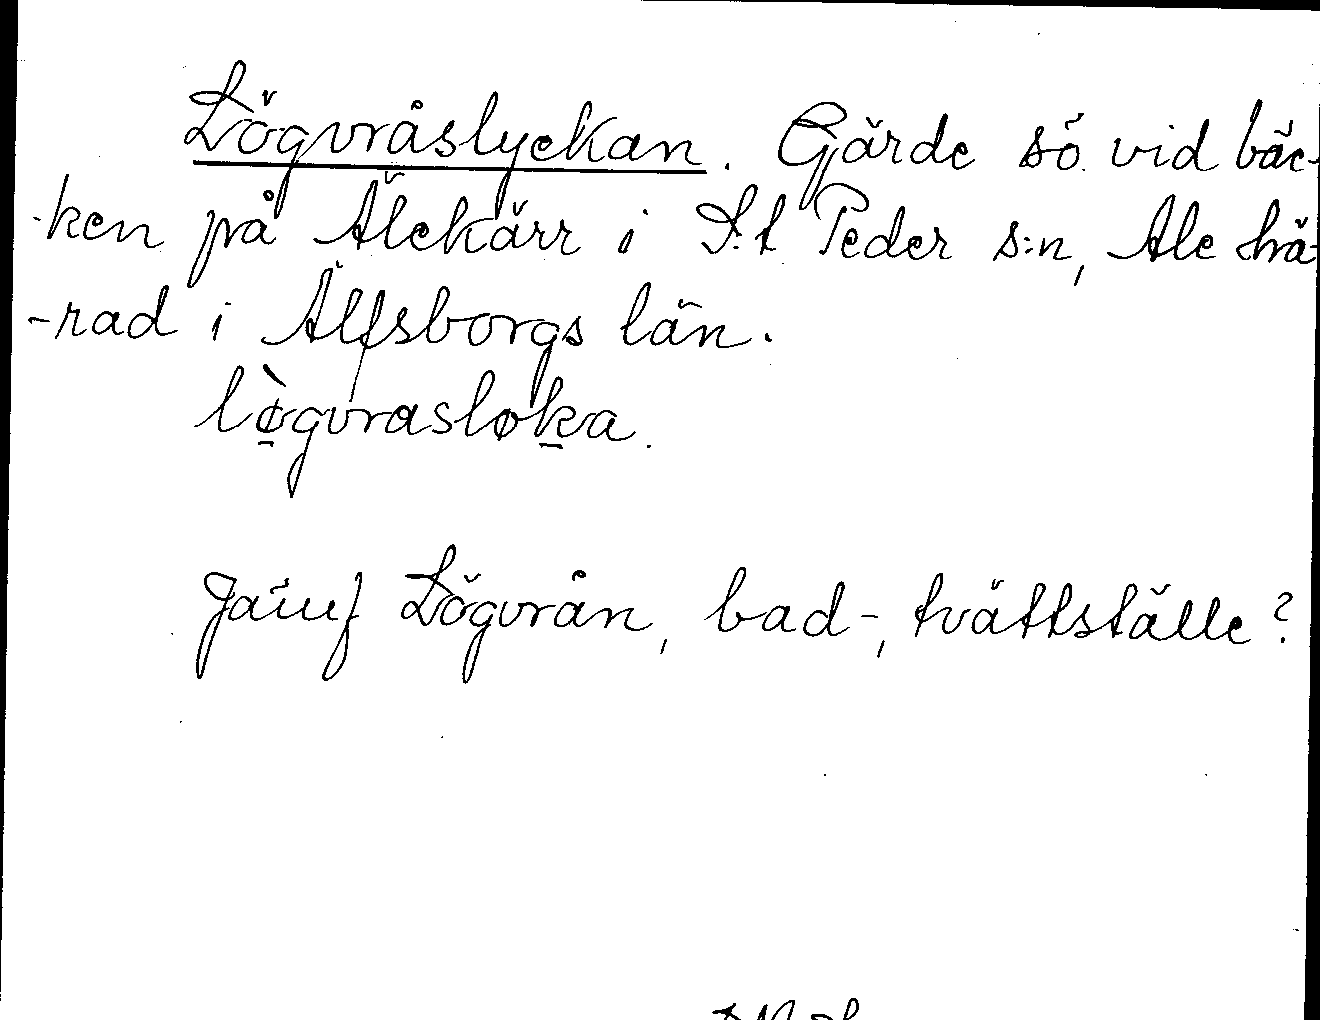 Lögvråslyckan. Gärde sö. vid bäc-
-ken på Älekärr i S:t Peder s:n, Ale hä-
-rad i Älfsborgs län.
lø̀gvrasløka.
Jämf Lögvrån, bad-, tvättställe?